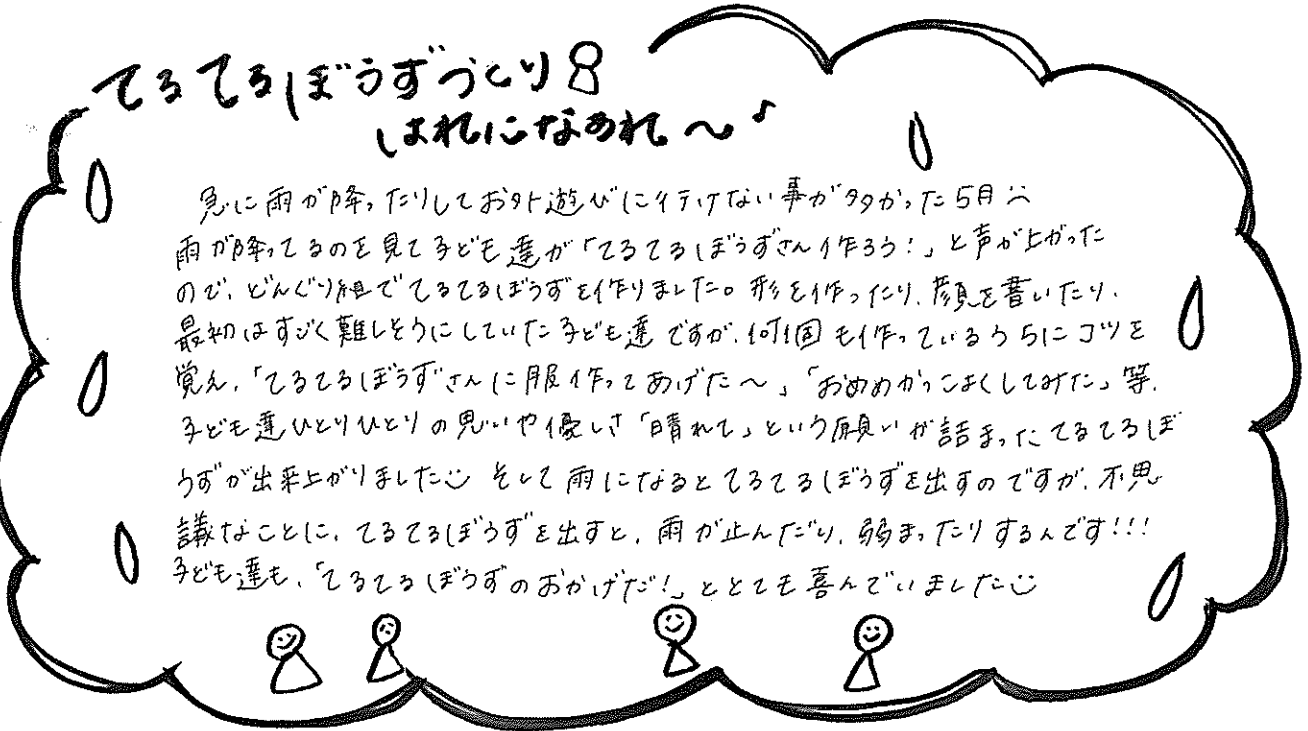 てるてるぼうずづくり
はれになあれ〜♪
急に雨が降ったりしてお外遊びに行けない事が多かった5月
雨が降ってるのを見て子ども達が「てるてるぼうずさん作ろう!」と声が上がった
ので、どんぐり組でてるてるぼうずを作りました。形を作ったり、顔を書いたり、
最初はすごく難しそうにしていた子ども達ですが、何個も作っているうちにコツを
覚え、「てるてるぼうずさんに服作ってあげた〜」「おめめかっこよくしてみた」等、
子ども達ひとりひとりの思いや優しさ「晴れて」という願いが詰まったてるてるぼ
うずが出来上がりました そして雨になるとてるてるぼうずを出すのですが、不思
議なことに、てるてるぼうずを出すと、雨が止んだり、弱まったりするんです!!!
子ども達も、「てるてるぼうずのおかげだ!」ととても喜んでいました